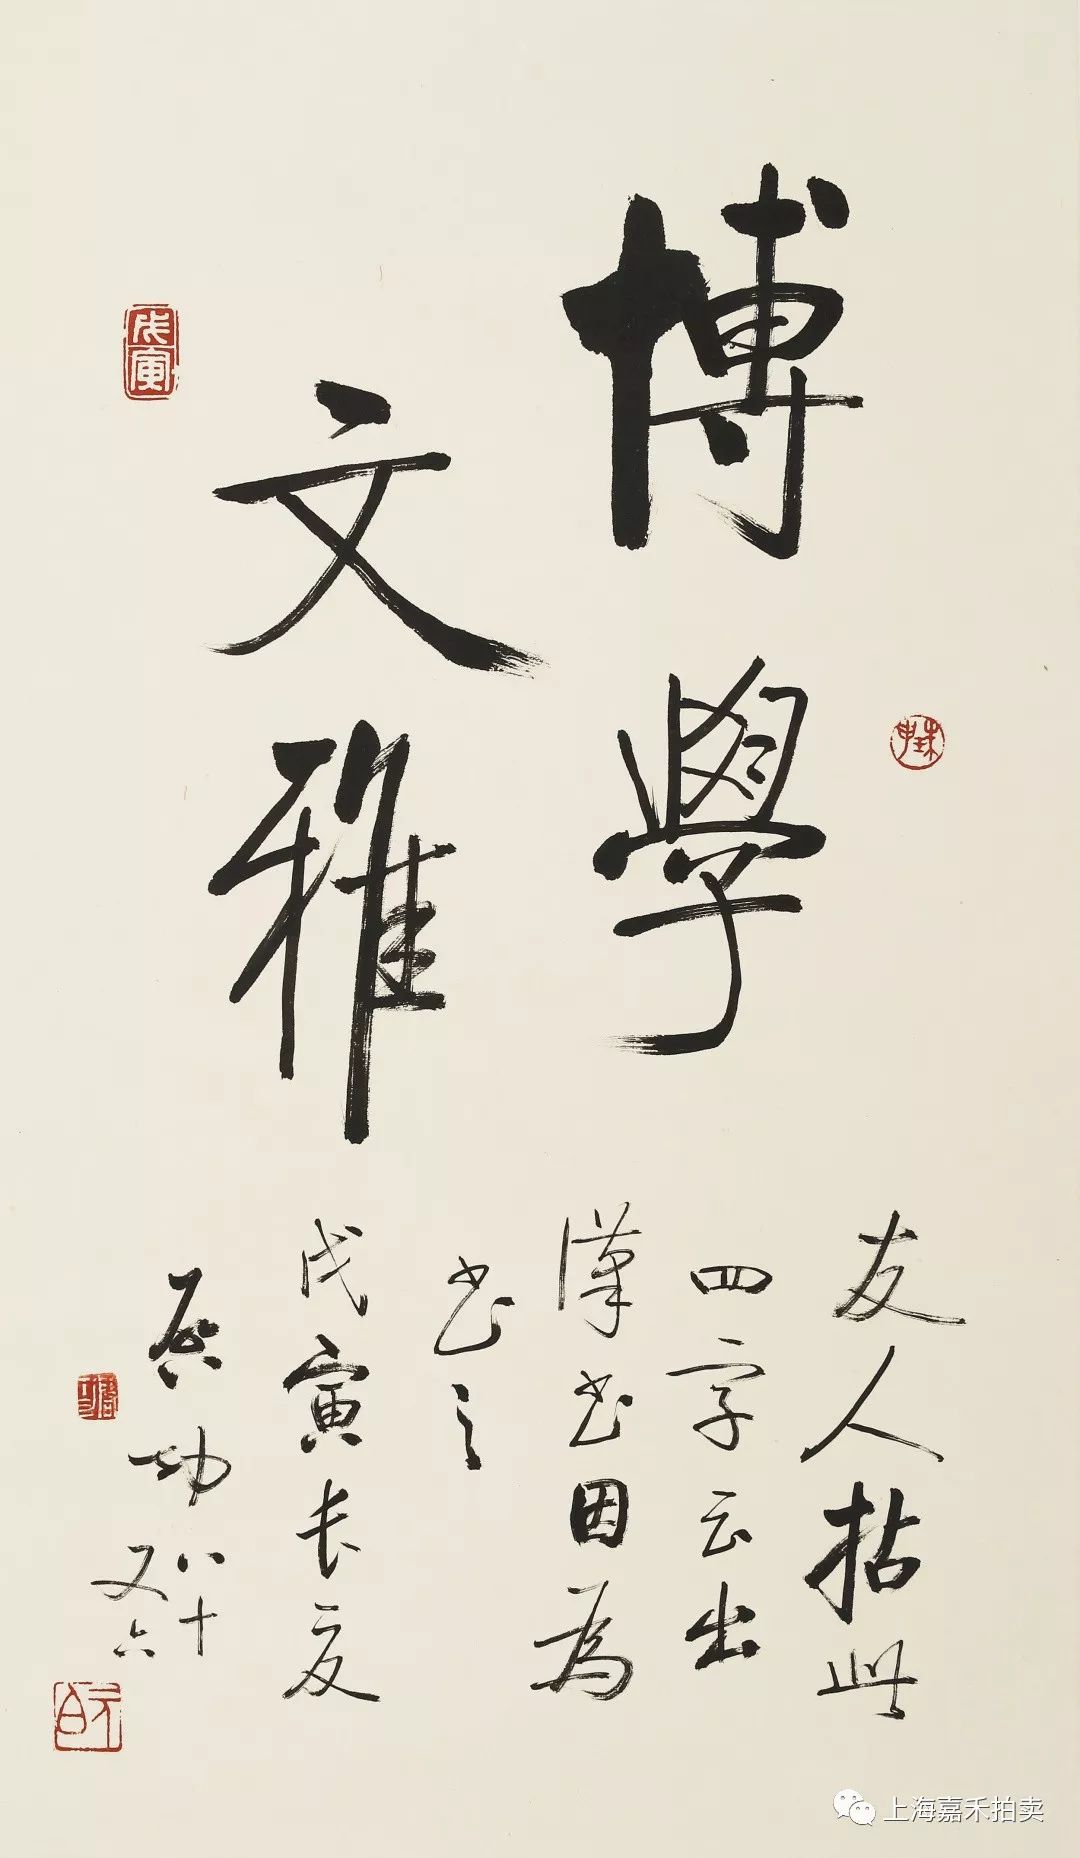 博學
文雅
友人拈此
四字云出
漢書因為
書之
戊寅長夏
启功八十
又六
戊寅
珠申
元白
上海嘉禾拍卖